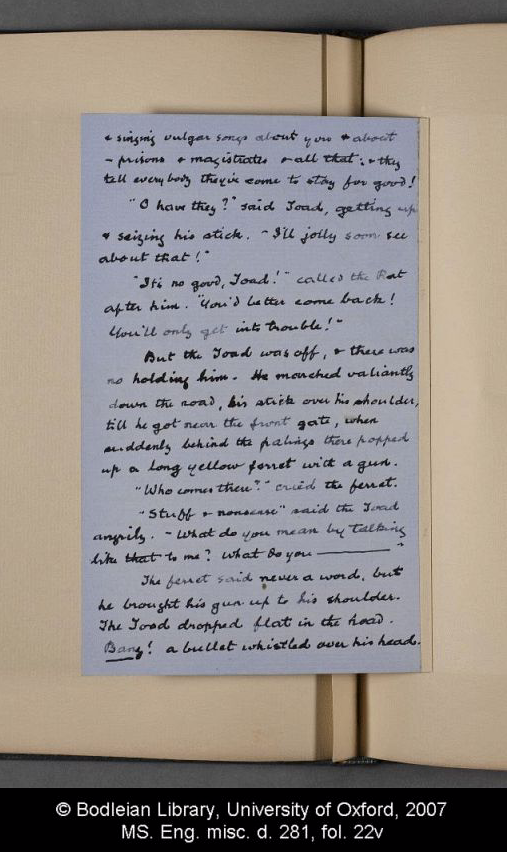 & singing vulgar songs about you & about
- prisons & magistrates & all that; & they
tell everybody they've come to stay for good!
"O have they?" said Toad, getting up
& seizing his stick. "I'll jolly soon see
about that!"
"It's no good, Toad!" called the Rat
after him. "You'd better come back!
You'll only get into trouble!"
But the Toad was off, & there was
no holding him. He marched valiantly
down the road, his stick over his shoulder,
till he got near the front gate, when
suddenly behind the palings there popped
up a long yellow ferret with a gun.
"Who comes there?" cried the ferret.
"Stuff & nonsense" said the Toad
angrily. "What do you mean by talking
like that to me? What do you ———"
The ferret said never a word, but
he brought his gun up to his shoulder.
The Toad dropped flat in the road.
Bang! a bullet whistled over his head.
© Bodleian Library, University of Oxford, 2007
MS. Eng. misc. d. 281, fol. 22v